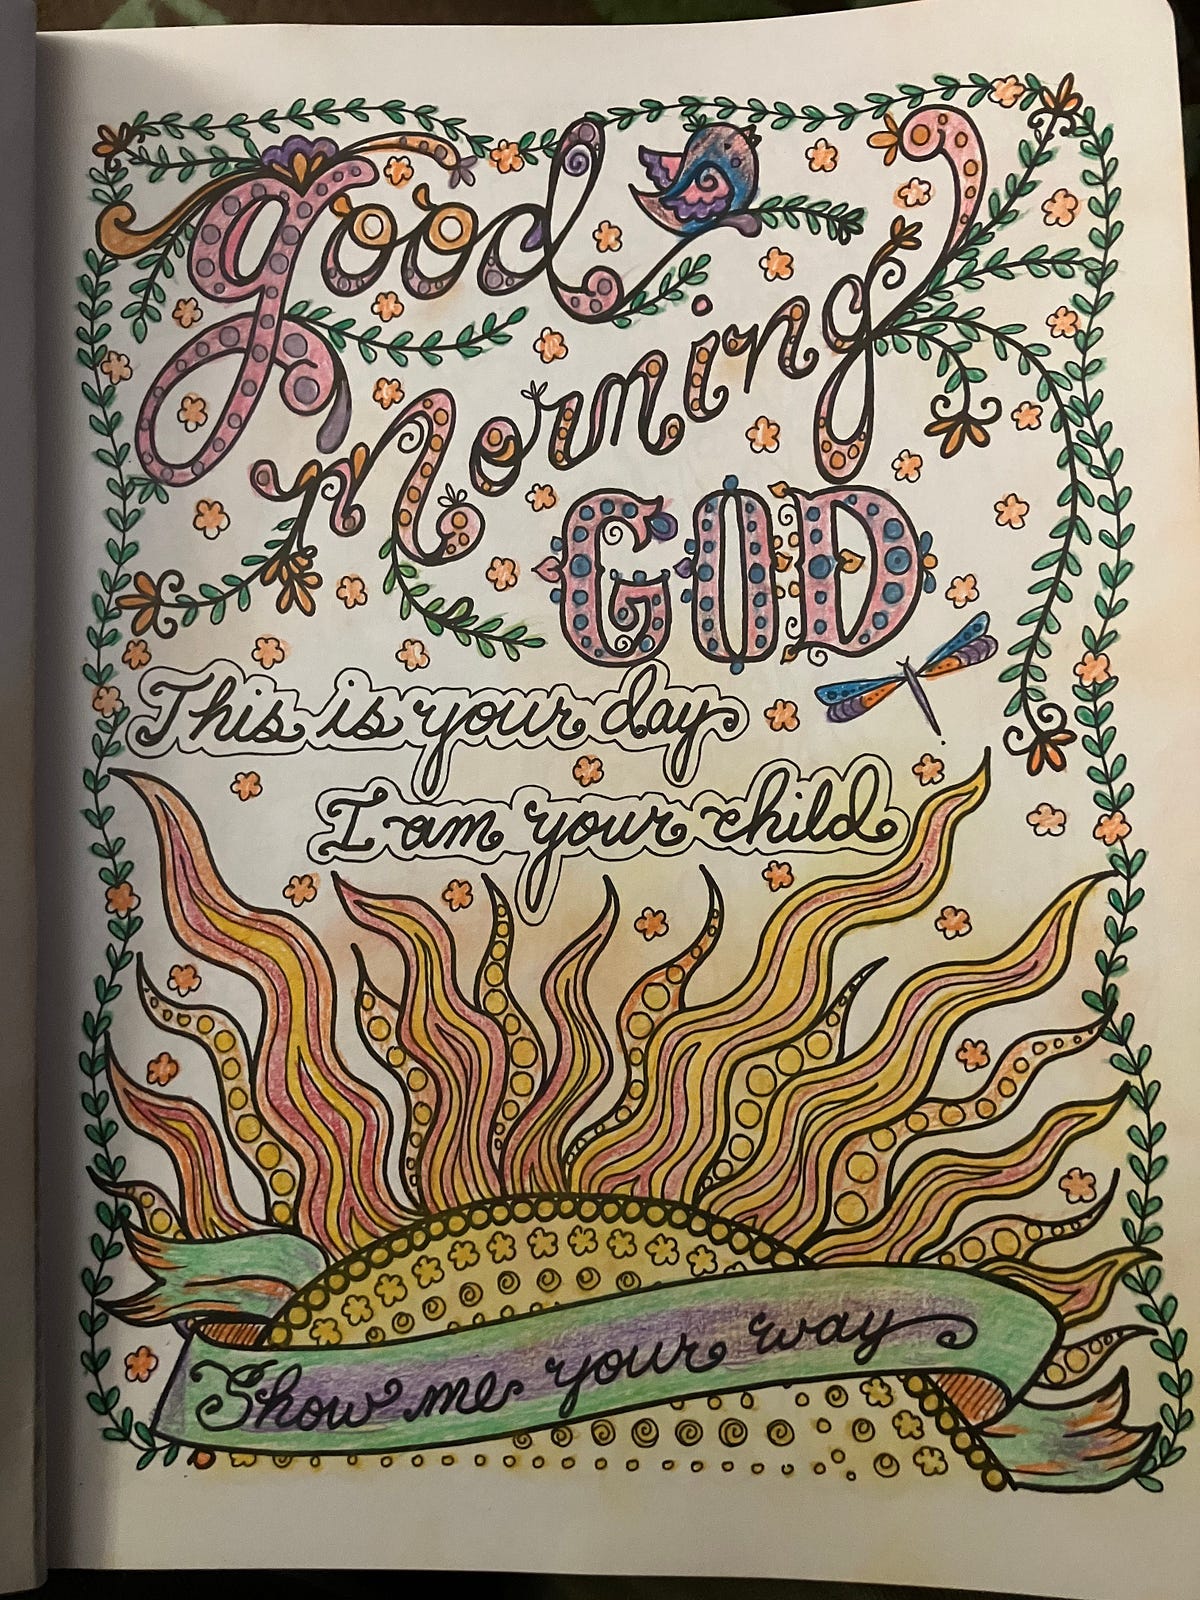 good
morning
GOD
This is your day
I am your child
Show me your way